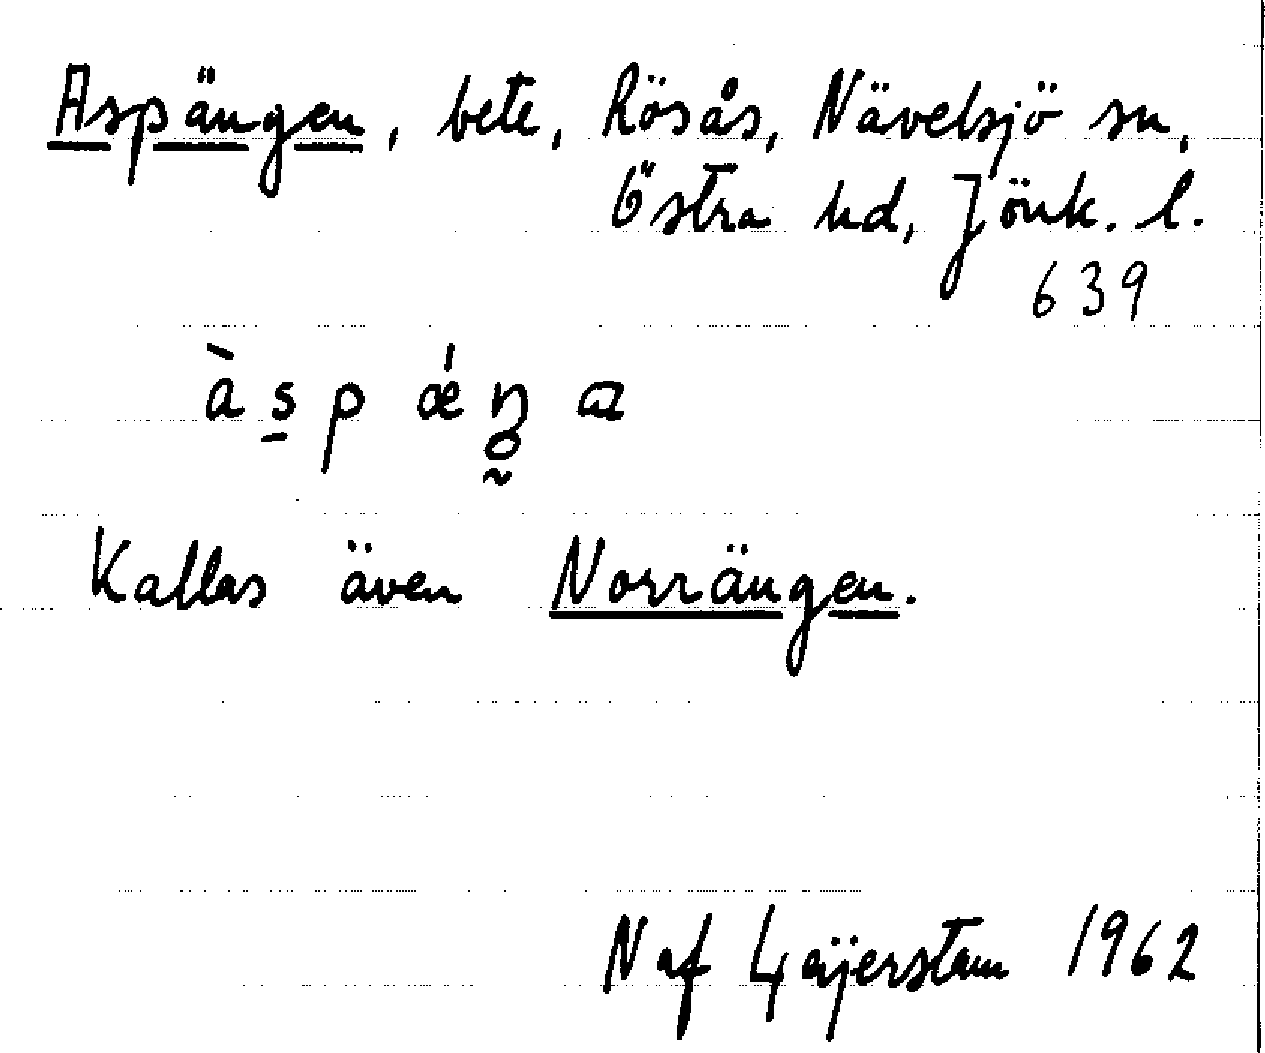 Aspängen, bete, Rösås, Nävelsjö sn,
Östra hd, Jönk. l.
639
à s̱ p ǽ ŋ̥̰ a
Kallas även Norrängen.
Naf Gäijerstam 1962